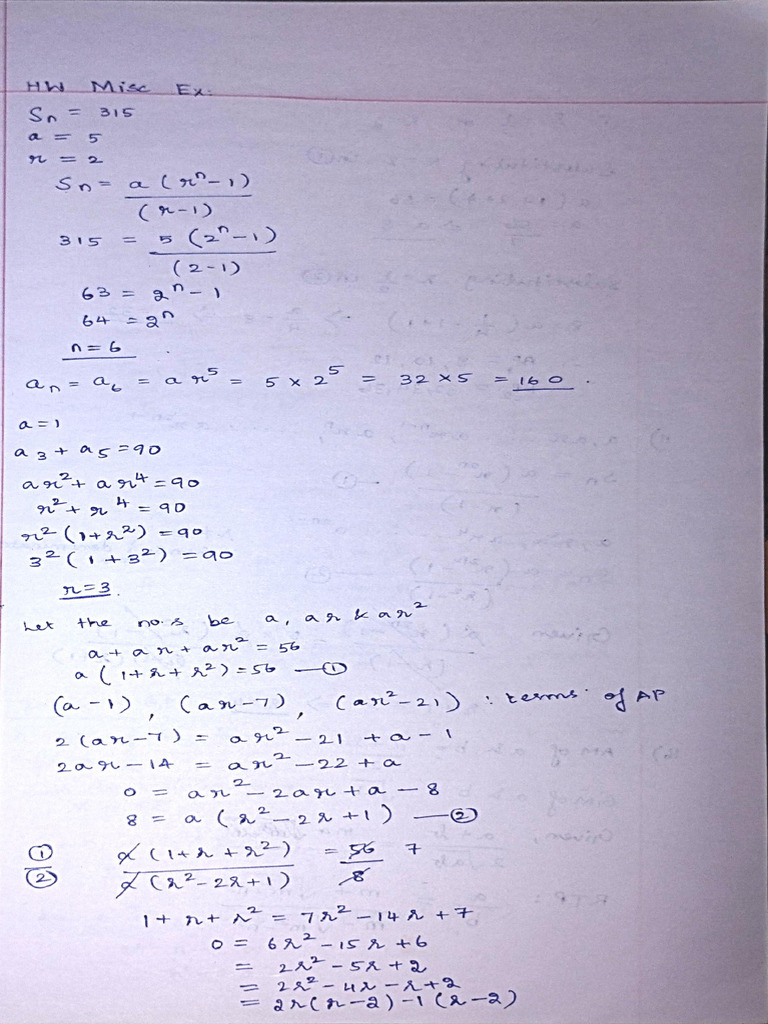 HW Misc Ex:
Sn = 315
a = 5
r = 2
Sn = a (rⁿ - 1)
(r - 1)
315 = 5 (2ⁿ - 1)
(2 - 1)
63 = 2ⁿ - 1
64 = 2ⁿ
n = 6
aₙ = a₆ = ar⁵ = 5 × 2⁵ = 32 × 5 = 160.
a = 1
a₃ + a₅ = 90
ar² + ar⁴ = 90
r² + r⁴ = 90
r² (1 + r²) = 90
3² (1 + 3²) = 90
r = 3.
Let the no.s be a, ar & ar²
a + ar + ar² = 56
a (1 + r + r²) = 56 — ①
(a - 1), (ar - 7), (ar² - 21) : terms of AP
2 (ar - 7) = ar² - 21 + a - 1
2ar - 14 = ar² - 22 + a
0 = ar² - 2ar + a - 8
8 = a (r² - 2r + 1) — ②
① a (1 + r + r²) = 56 7
② a (r² - 2r + 1) 8
1 + r + r² = 7r² - 14r + 7
0 = 6r² - 15r + 6
= 2r² - 5r + 2
= 2r² - 4r - r + 2
= 2r (r - 2) - 1 (r - 2)